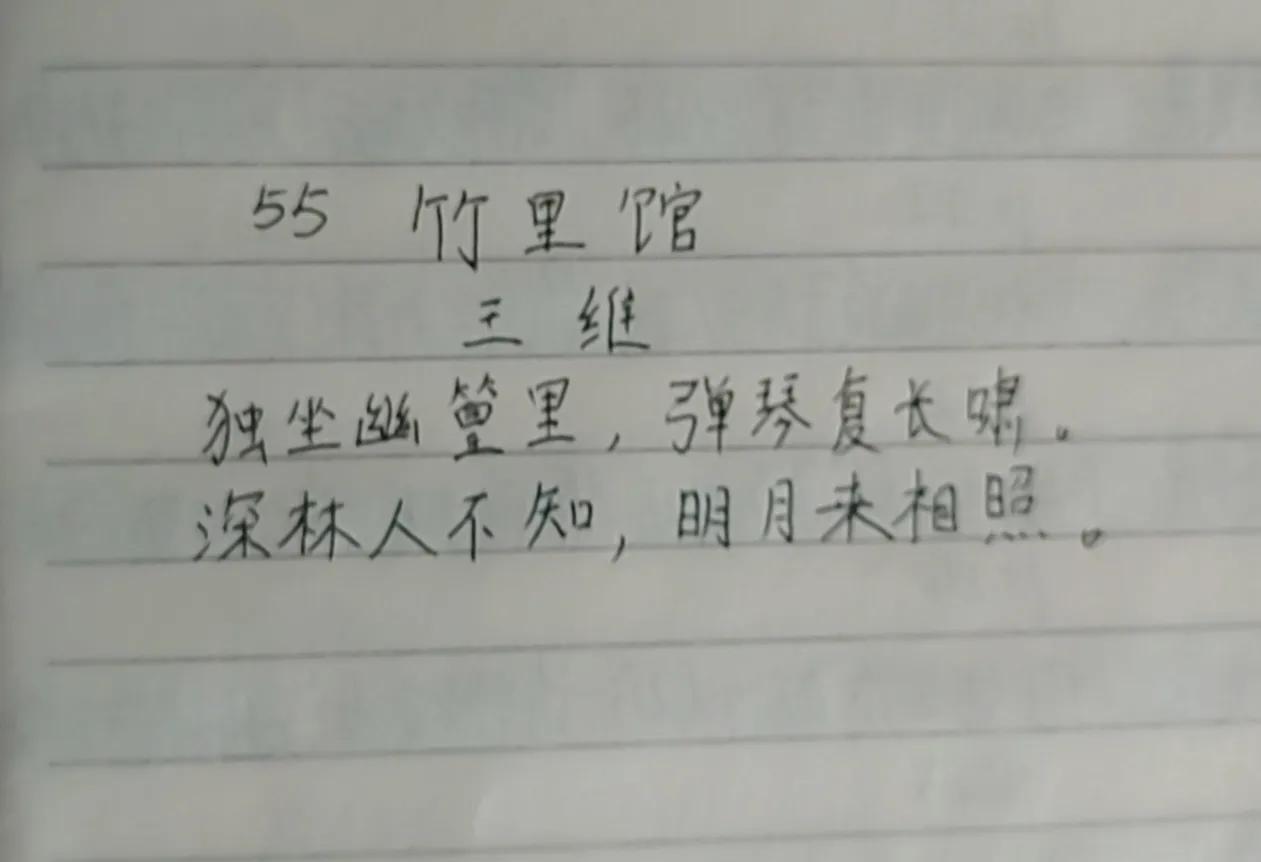 55 竹里馆
王维
独坐幽篁里，弹琴复长啸。
深林人不知，明月来相照。